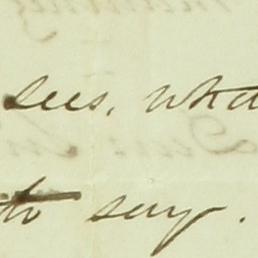 sees, wha
to say.